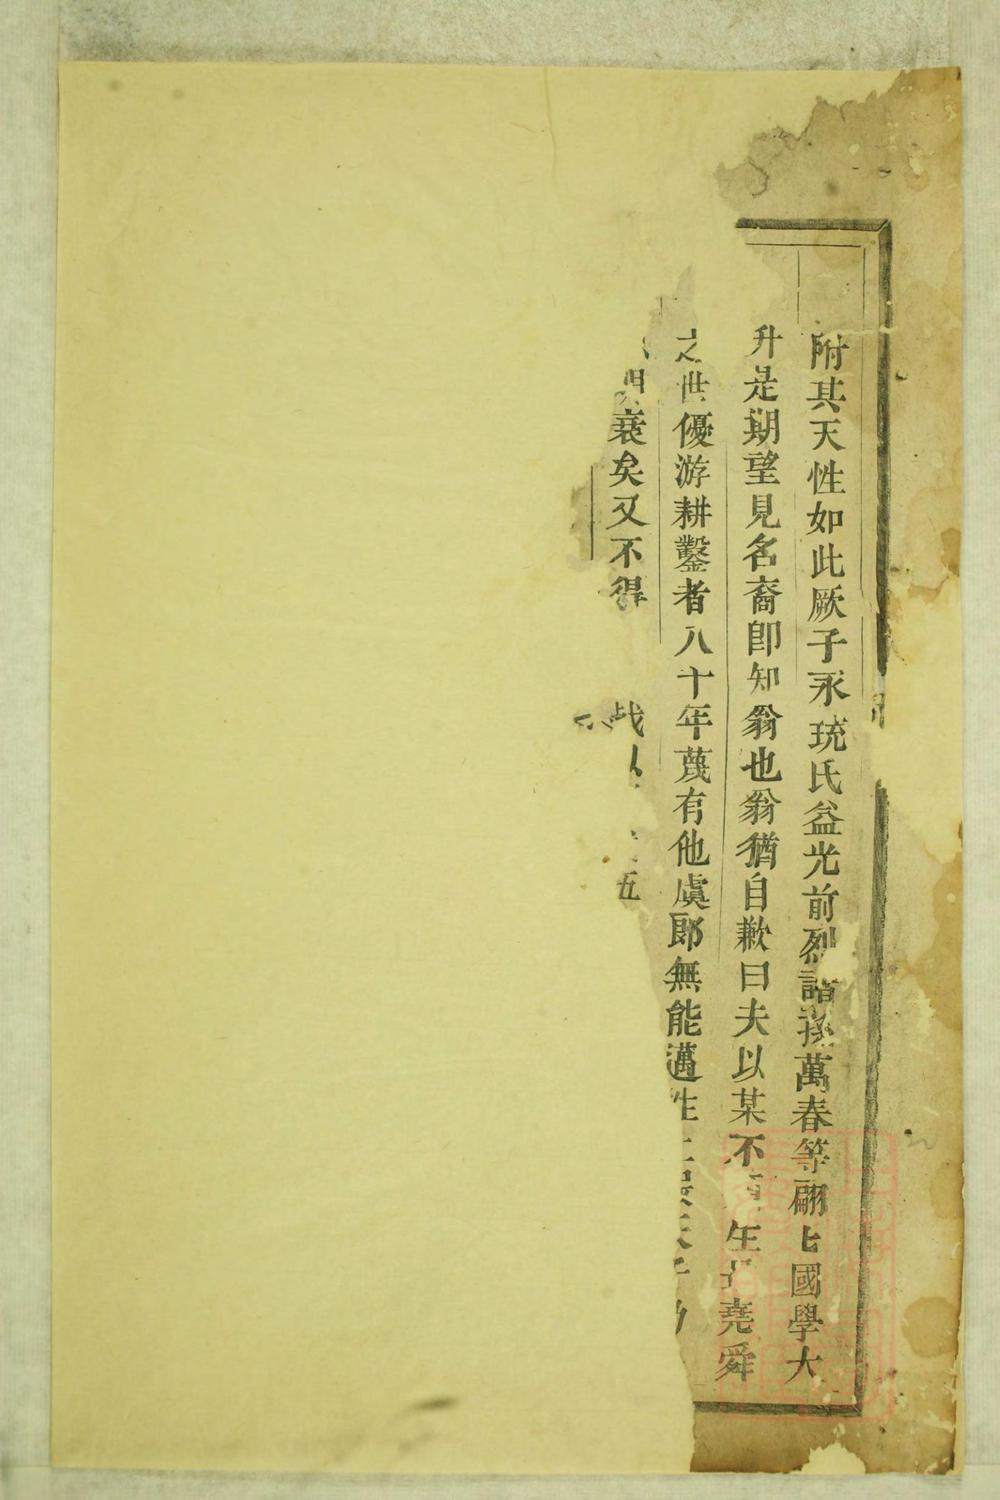 附其天性如此厥子永珫氏益光前烈諸孫萬春等翩七國學大
升是期望見名裔卽知翁也翁猶自歉曰夫以某不 生 堯舜
之世優游耕鑿者八十年蔑有他虞郞無能邁
衰矣又不得 五